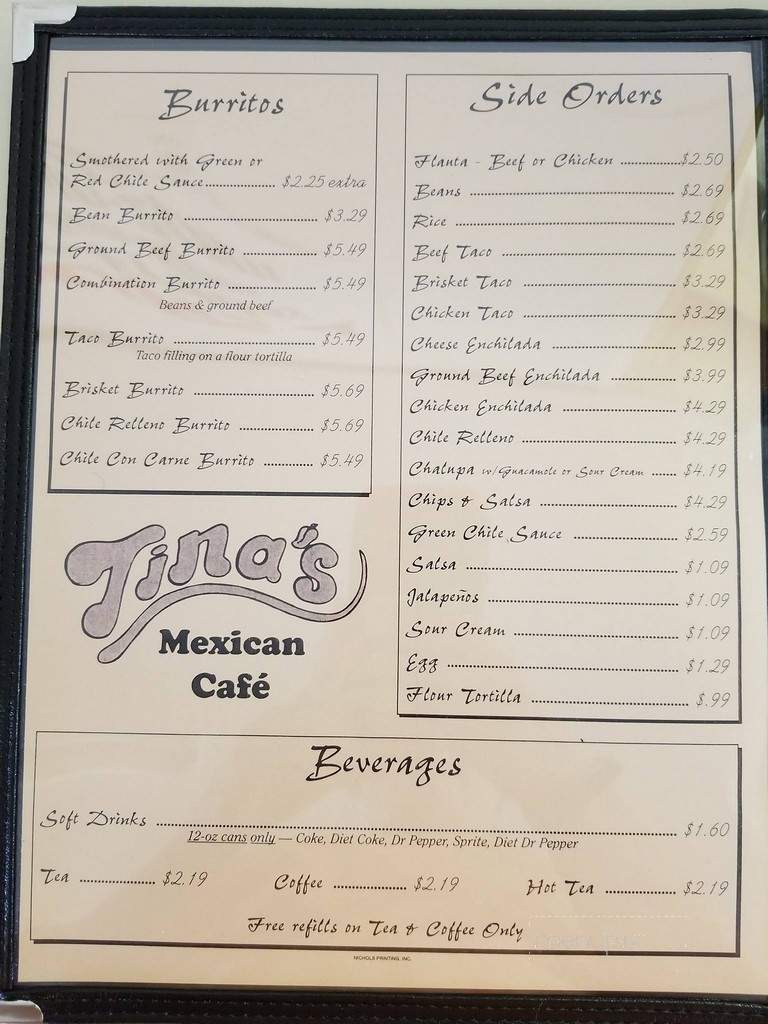 Burritos
Smothered with Green or
Red Chile Sauce.................... $2.25 extra
Bean Burrito ........................................ $3.29
Ground Beef Burrito ...................... $5.49
Combination Burrito .......................... $5.49
Beans & ground beef
Taco Burrito .......................................... $5.49
Taco filling on a flour tortilla
Brisket Burrito .................................... $5.69
Chile Relleno Burrito ....................... $5.69
Chile Con Carne Burrito ............... $5.49
Tina's
Mexican
Café
Side Orders
Flauta - Beef or Chicken ..................$2.50
Beans .............................................................. $2.69
Rice ................................................................. $2.69
Beef Taco .................................................... $2.69
Brisket Taco ............................................... $3.29
Chicken Taco .............................................. $3.29
Cheese Enchilada ..................................... $2.99
Ground Beef Enchilada ................... $3.99
Chicken Enchilada .................................. $4.29
Chile Relleno .............................................. $4.29
Chalupa w/Guacamole or Sour Cream ....... $4.19
Chips & Salsa ......................................... $4.29
Green Chile Sauce ............................... $2.59
Salsa ................................................................ $1.09
Jalapeños ........................................................ $1.09
Sour Cream ................................................ $1.09
Egg .................................................................... $1.29
Flour Tortilla ............................................... $.99
Beverages
Soft Drinks ........................................................................ $1.60
12-oz cans only — Coke, Diet Coke, Dr Pepper, Sprite, Diet Dr Pepper
Tea ...................... $2.19 Coffee ..................... $2.19 Hot Tea .................... $2.19
Free refills on Tea & Coffee Only
NICHOLS PRINTING, INC.